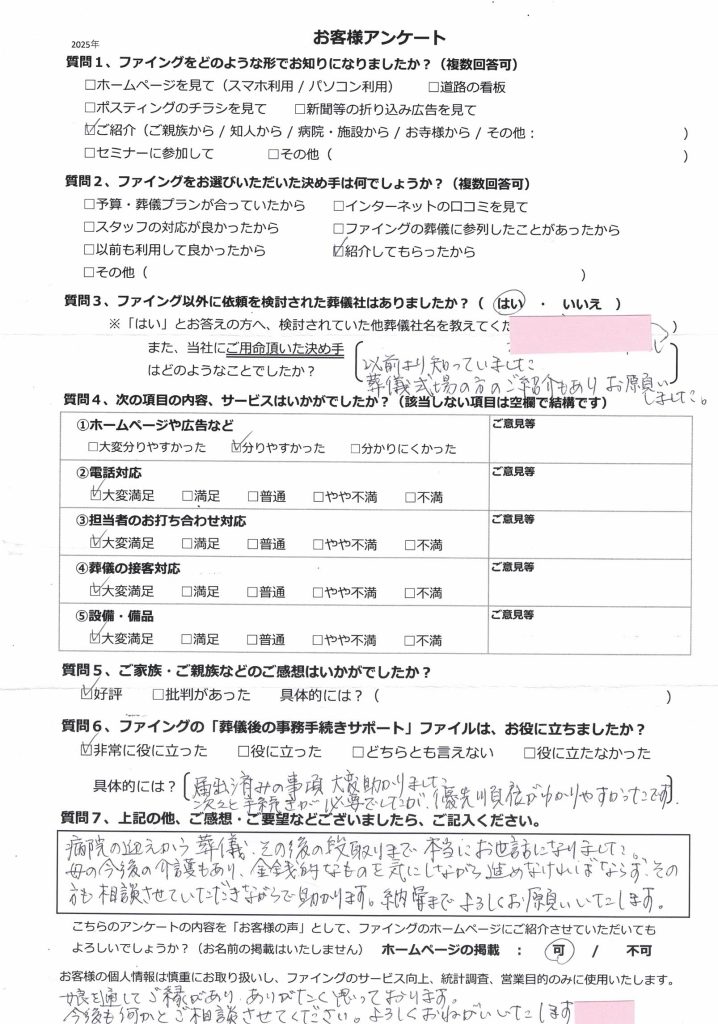 2025年
お客様アンケート
質問１、ファイングをどのような形でお知りになりましたか？（複数回答可）
□ホームページを見て（スマホ利用 / パソコン利用） □道路の看板
□ポスティングのチラシを見て □新聞等の折り込み広告を見て
☑ご紹介（ご親族から / 知人から / 病院・施設から / お寺様から / その他： ）
□セミナーに参加して □その他（ ）
質問２、ファイングをお選びいただいた決め手は何でしょうか？（複数回答可）
□予算・葬儀プランが合っていたから □インターネットの口コミを見て
□スタッフの対応が良かったから □ファイングの葬儀に参列したことがあったから
□以前も利用して良かったから ☑紹介してもらったから
□その他（ ）
質問３、ファイング以外に依頼を検討された葬儀社はありましたか？（ はい ・ いいえ ）
※「はい」とお答えの方へ、検討されていた他葬儀社名を教えてくだ ）
また、当社にご用命頂いた決め手
はどのようなことでしたか？
以前より知っていました
葬儀式場の方のご紹介もあり お願い
しました。
質問４、次の項目の内容、サービスはいかがでしたか？（該当しない項目は空欄で結構です）
①ホームページや広告など ご意見等
□大変分りやすかった ☑分りやすかった □分かりにくかった
②電話対応 ご意見等
☑大変満足 □満足 □普通 □やや不満 □不満
③担当者のお打ち合わせ対応 ご意見等
☑大変満足 □満足 □普通 □やや不満 □不満
④葬儀の接客対応 ご意見等
☑大変満足 □満足 □普通 □やや不満 □不満
⑤設備・備品 ご意見等
☑大変満足 □満足 □普通 □やや不満 □不満
質問５、ご家族・ご親族などのご感想はいかがでしたか？
☑好評 □批判があった 具体的には？（ ）
質問６、ファイングの「葬儀後の事務手続きサポート」ファイルは、お役に立ちましたか？
☑非常に役に立った □役に立った □どちらとも言えない □役に立たなかった
具体的には？ 届出済みの事項 大変助かりました
次々と手続きが必要でしたが、優先順位がわかりやすかったです
質問７、上記の他、ご感想・ご要望などございましたら、ご記入ください。
病院の迎えから葬儀、その後の段取りまで本当にお世話になりました。
母の今後の介護もあり、金銭的なものを気にしながら進めなければならず、その
方も相談させていただきながらで助かります。納骨までよろしくお願いいたします。
こちらのアンケートの内容を「お客様の声」として、ファイングのホームページにご紹介させていただいても
よろしいでしょうか？（お名前の掲載はいたしません） ホームページの掲載 ： 可 / 不可
お客様の個人情報は慎重にお取り扱いし、ファイングのサービス向上、統計調査、営業目的のみに使用いたします。
娘を通してご縁があり、ありがたく思っております。
今後も何かとご相談させてください。よろしくおねがいいたします